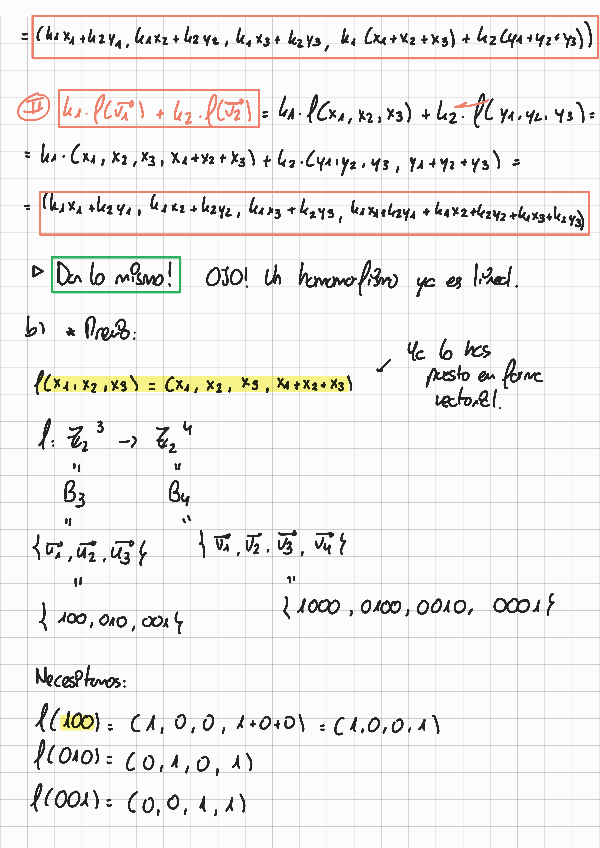 = (k1x1+k2y1, k1x2+k2y2, k1x3+k2y3, k1(x1+x2+x3)+k2(y1+y2+y3))
II k1·f(v1)+k2·f(v2) = k1·f(x1,x2,x3)+k2·f(y1,y2,y3) =
= k1·(x1,x2,x3,x1+x2+x3)+k2·(y1,y2,y3,y1+y2+y3) =
= (k1x1+k2y1, k1x2+k2y2, k1x3+k2y3, k1x1+k2y1+k1x2+k2y2+k1x3+k2y3)
▷ Dan lo mismo! OJO! Un homomofismo ya es lineal.
b) * Previo:
f(x1,x2,x3) = (x1,x2,x3,x1+x2+x3)
✓ Ya lo has
puesto en forma
vectorial.
f: Z2^3 → Z2^4
" "
B3 B4
" "
{u1,u2,u3} {v1,v2,v3,v4}
" "
{100,010,001} {1000,0100,0010,0001}
Necesitamos:
f(100) = (1,0,0,1+0+0) = (1,0,0,1)
f(010) = (0,1,0,1)
f(001) = (0,0,1,1)